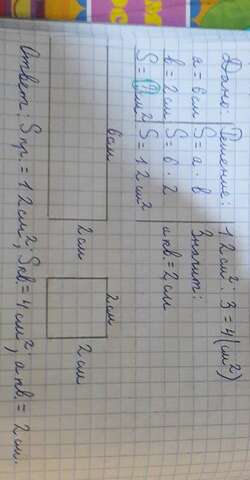 Дано: Решение: 12см² : 3 = 4 (см²)
a = 6см S = a · b Значит:
b = 2см S = 6 · 2 a кв. = 2см
S = ?см² S = 12см²
6см
2см
2см
2см
Ответ: S пр. = 12см², Sкв. = 4см²; a кв. = 2см.